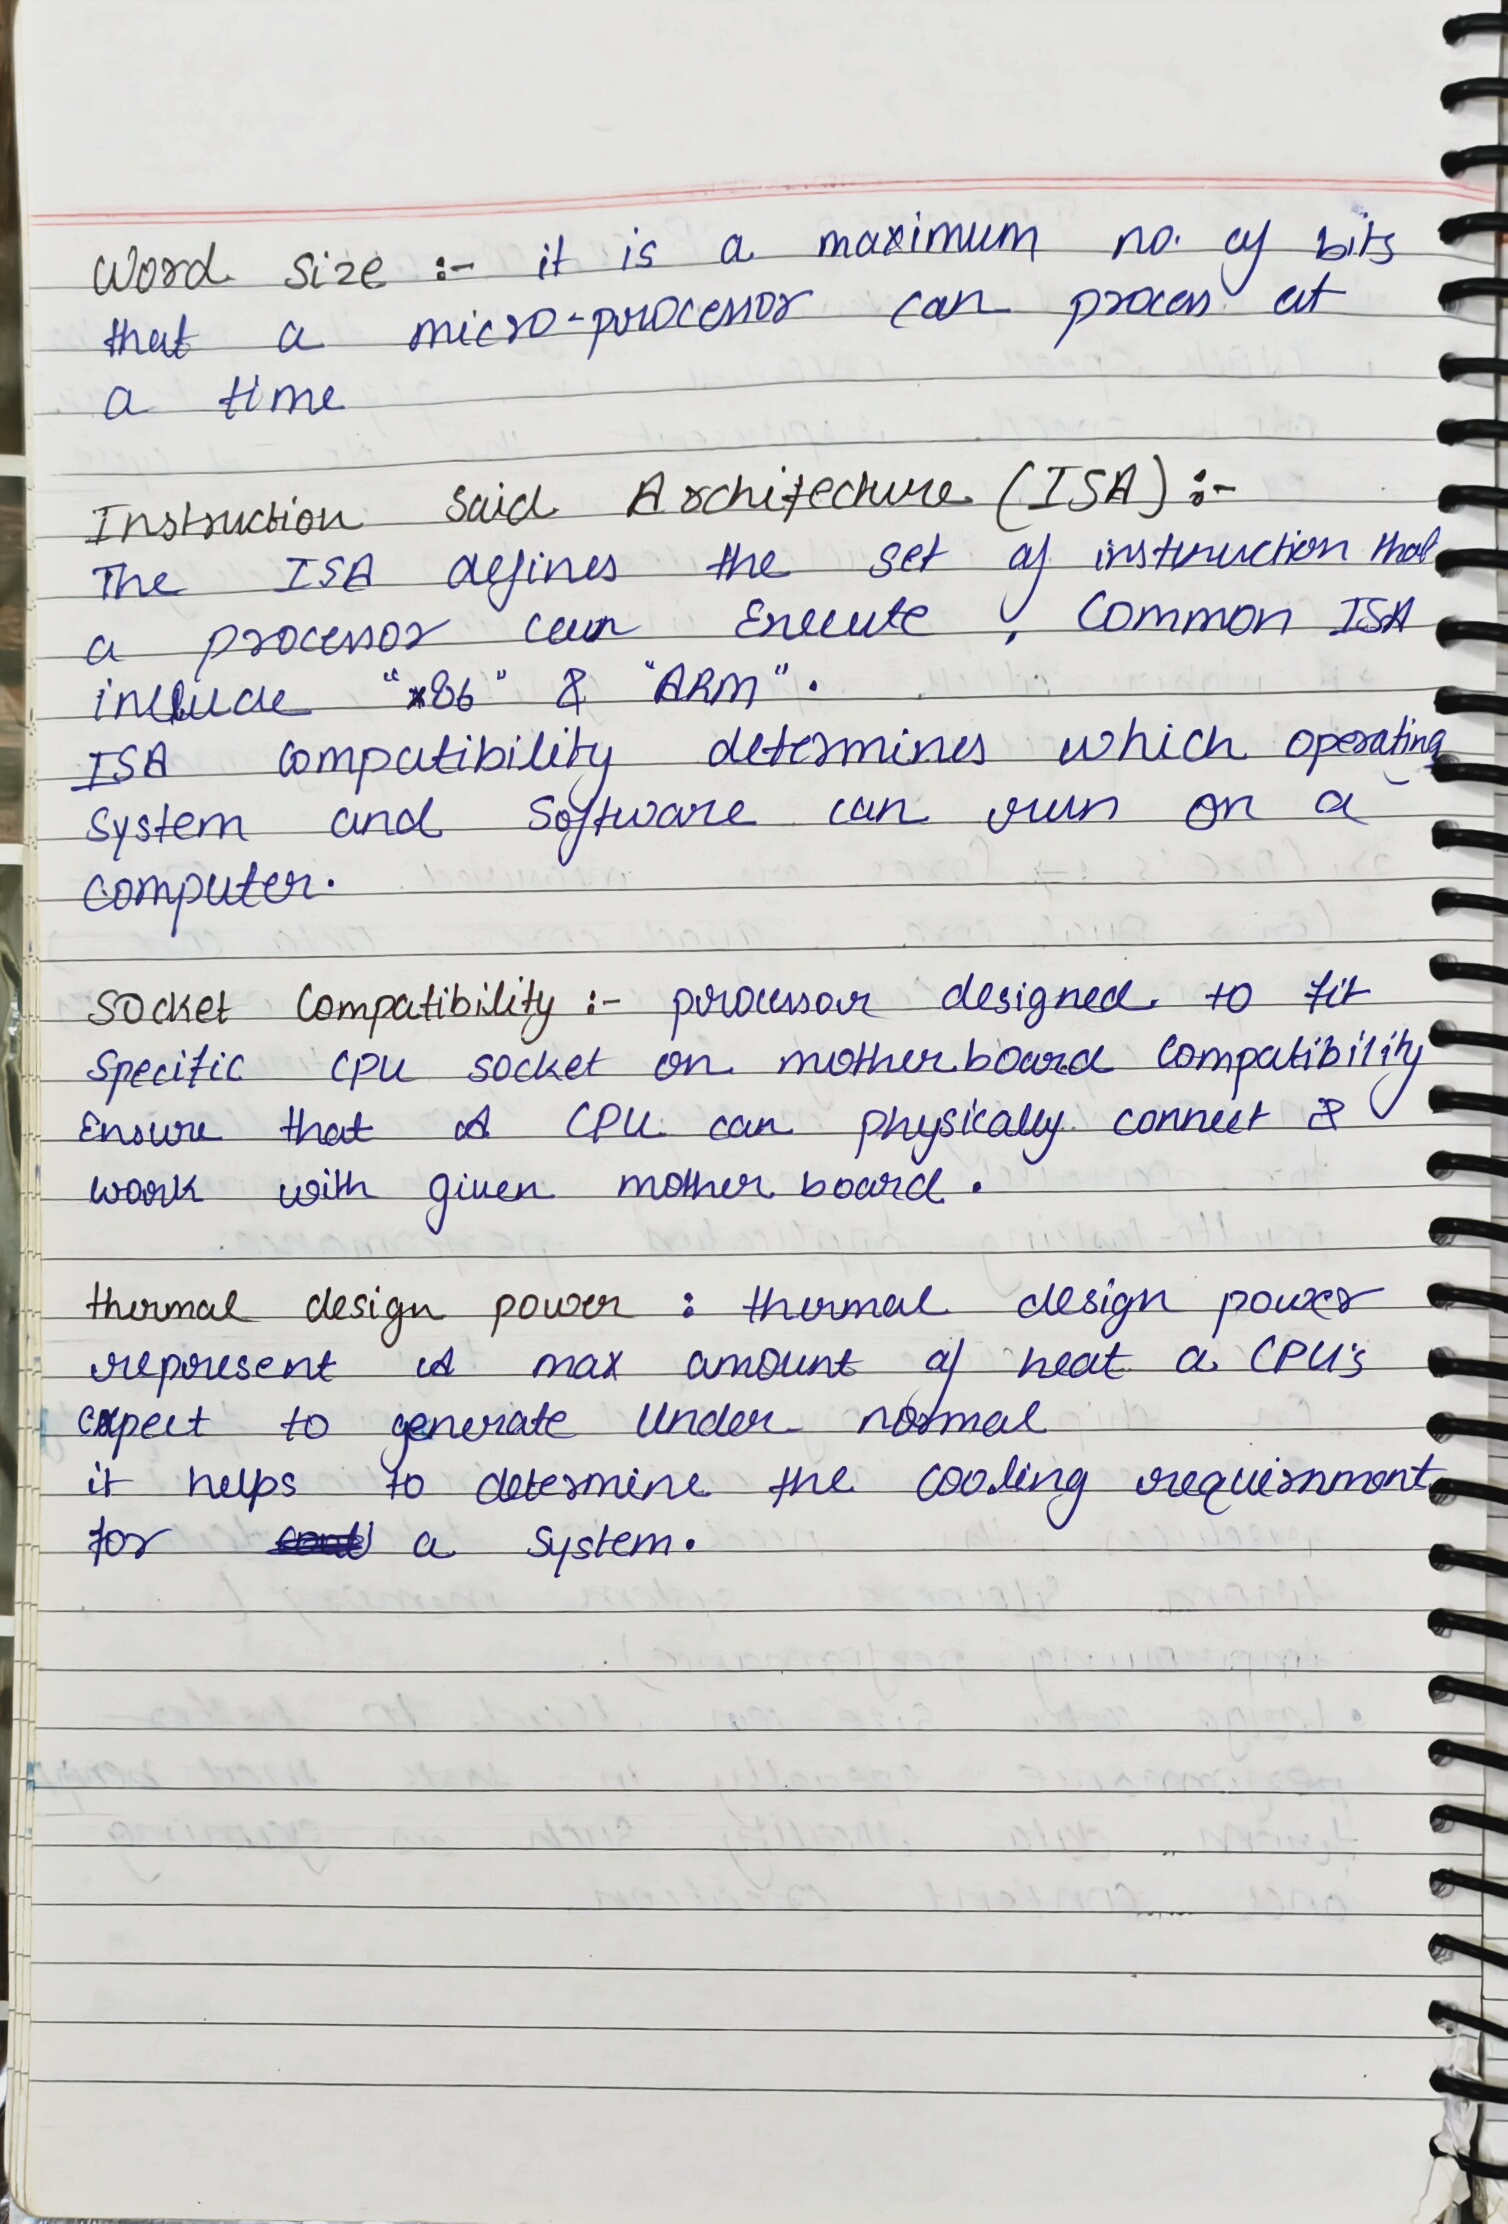 Word size :- it is a maximum no. of bits
that a micro-processor can process at
a time
Instruction said Architecture (ISA) :-
The ISA defines the set of instruction that
a processor can Execute , Common ISA
include "x86" & "ARM".
ISA compatibility determines which operating
system and Software can run on a
computer.
Socket Compatibility :- processor designed to fit
Specific CPU socket on motherboard Compatibility
Ensure that a CPU can physically connect &
work with given mother board.
thermal design power : thermal design power
represent a max amount of heat a CPU's
expect to generate Under normal
it helps to determine the cooling requirnment
for a system.